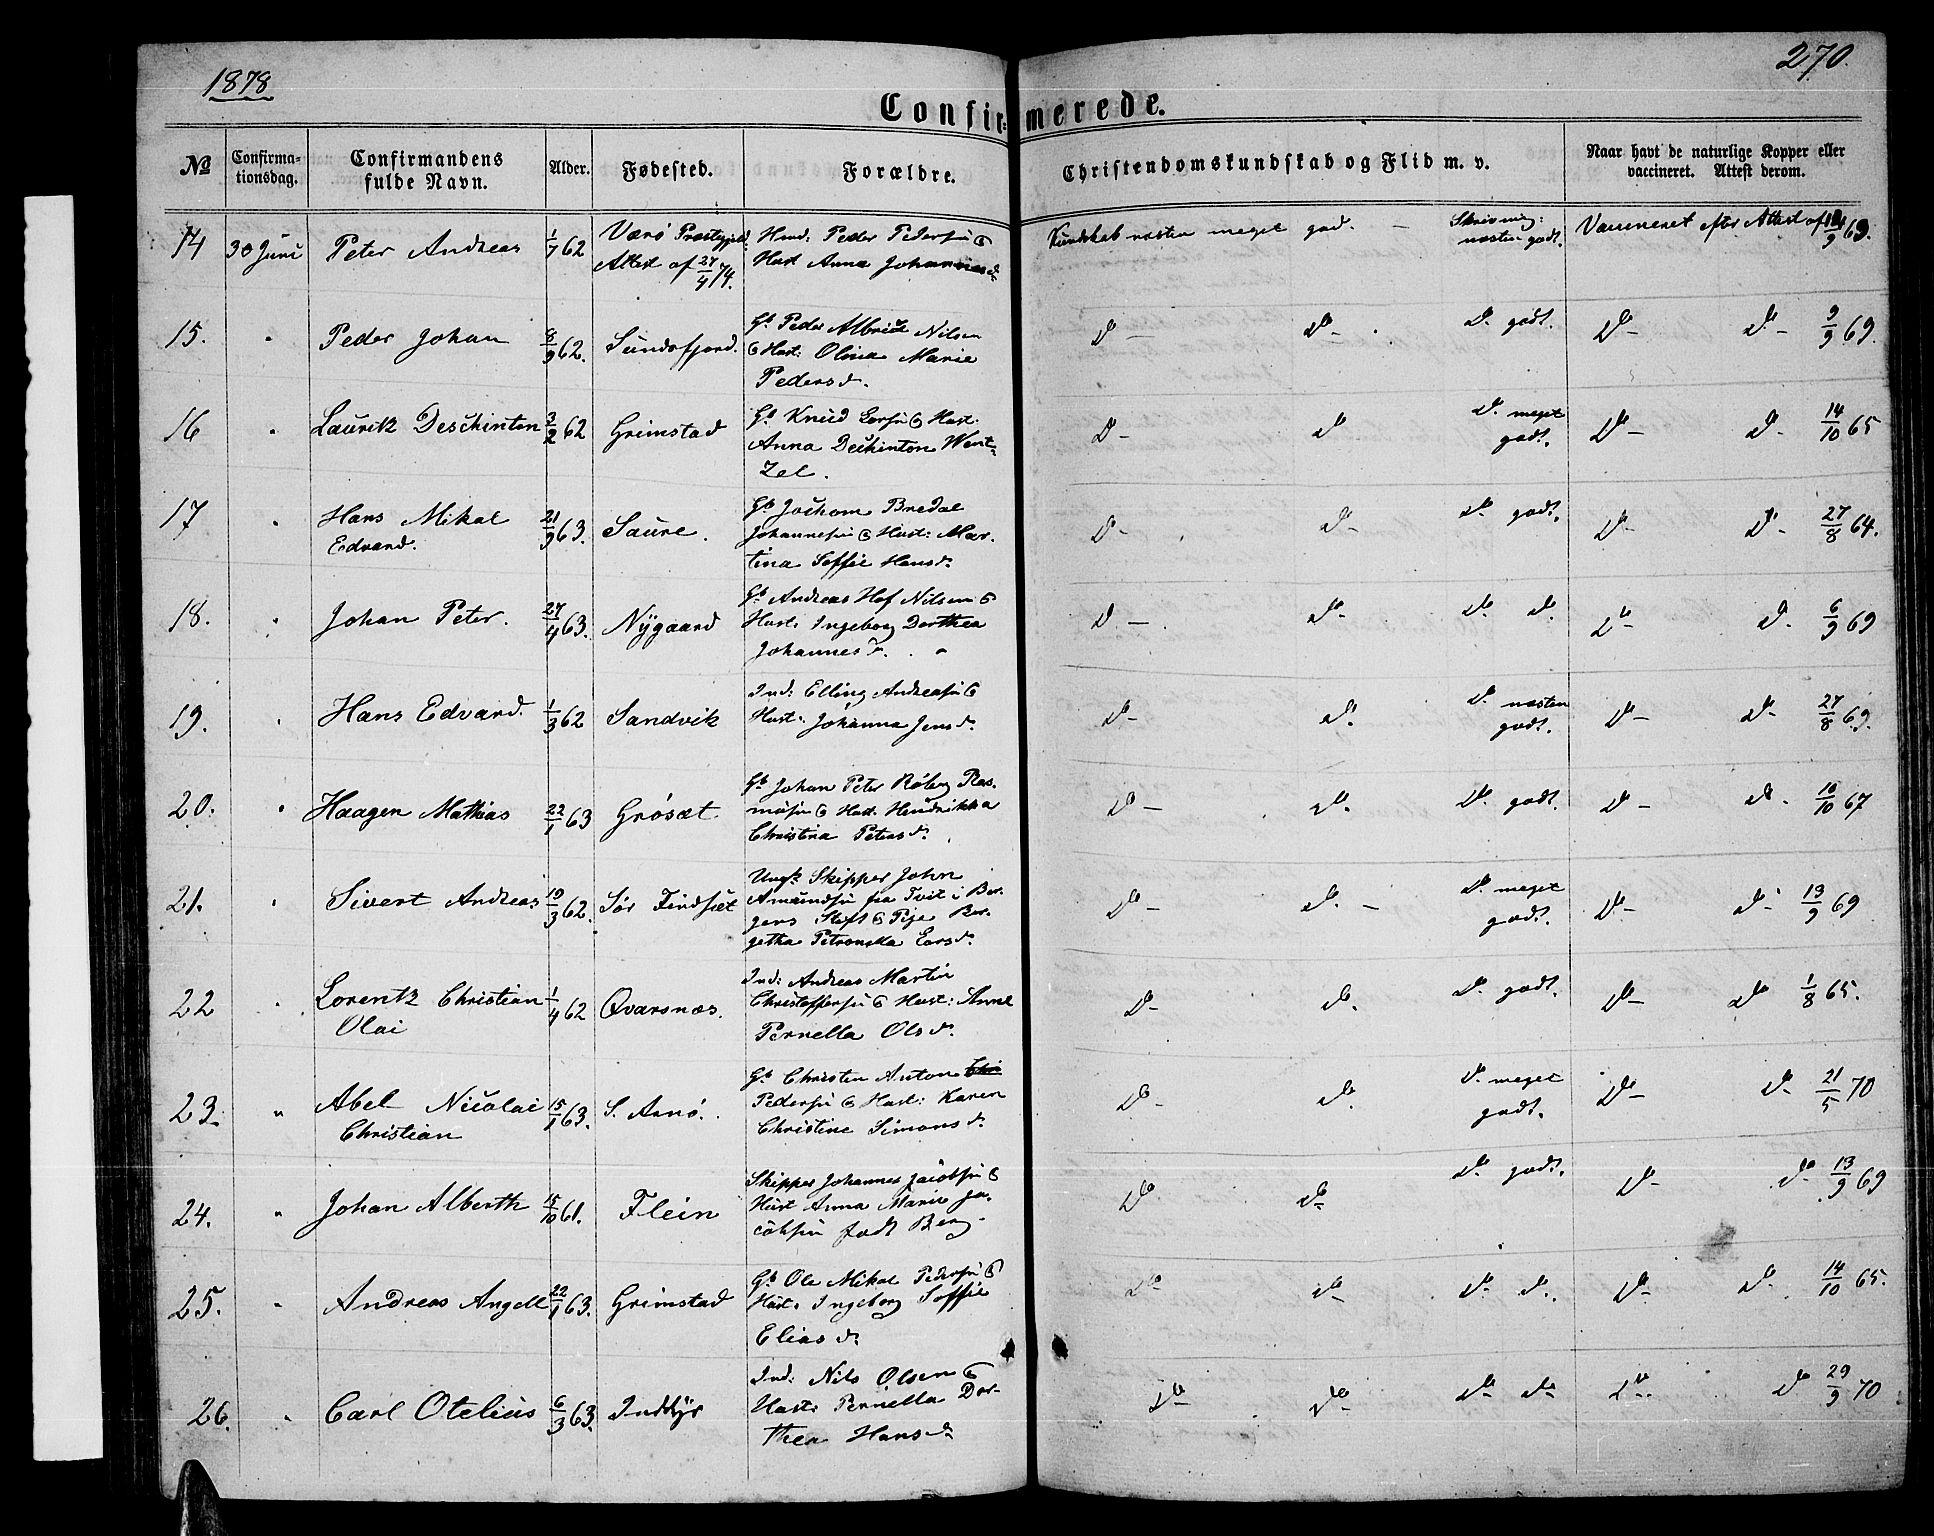 1878
270.
Confirmerede.
No
Confirmationsdag.
Confirmandens fulde Navn.
Alder.
Fødested.
Forældre.
Christendomskundskab og Flid m. v.
Naar havt de naturlige Kopper eller vaccineret. Attest derom.
14 30 Juni Peter Andreas 1/7 62 Værö Præstegjeld. Attest af 27/4 74.
Husm: Peder Pedersen &
Hust Anna Johannesd.
Kundskab næsten meget god. — Skrivning: næsten godt. Vaccineret efter Attest af 9 69.
15. " Peder Johan 8/9 62. Sundsfjord.
Gb Peder Albrict Nilsen
& Hust: Olina Marie
Pedersd.
Do — Do — . Do godt. Do — Do — 9/9 69.
16 " Lauritz Deschinton 3/2 62 Grimstad
Gb Knud Larsen & Hust.
Anna Deschinton Went-
zel.
Do — Do Do meget godt. Do — Do — 14/10 65
17 " Hans Mikal Edvard. 21/9 63. Saure.
Gb Jochom Bredal
Johannesen & Hust: Mar-
tina Soffie Hansd.
Do — Do — Do godt. Do — Do — 27/8 64.
18. " Johan Peter. 27/4 63. Nygaard
Gb Andreas Hof Nilsen &
Hust: Ingeborg Dorthea
Johannesd.
Do — Do — Do Do Do — Do 6/9 69
19. " Hans Edvard. 1/3 62 Sandvik
Ind: Elling Andreasen &
Hust: Johanna Jensd.
Do — Do. Do næsten godt. Do — Do — 27/8 69.
20. " Haagen Mathias 22/1 63 Grósæt
Gb Johan Peter Röberg Ras-
musen & Hust. Hendrikka
Christina Petersd.
Do — Do. Do godt. Do — Do. 10/10 67
21. " Sivert Andreas 19/3 62. Sör Findsæt
Ungk. Skipper John
Amundsen fra Tveit i Ber-
gens Stift & Pige Ber-
getha Petronella Larsd.
Do — Do. — Do meget godt. Do — Do — 13/9 69
22 " Lorentz Christian Olai 1/4 62 Qvarsnæs.
Ind: Andreas Martin
Christoffersen & Hust: Anne
Pernella Olsd.
Do — Do. Do godt. Do — Do 1/8 65.
23. " Abel Nicolai Christian 15/1 63. S. Arnö.
Gb Christen Anton
Pedersen & Hust: Karen
Christine Simonsd.
Do — Do. Do meget godt. Do — Do 21/5 70
24. " Johan Alberth 15/10 61. Flein
Skipper Johannes Jacobsen &
Hust Anna Marie Ja-
cobsen födt Berg.
Do Do Do godt. Do — Do 13/9 69
25. " Andreas Angell 22/1 63. Grimstad
Gb Ole Mikal Pedersen &
Hust: Ingeborg Soffie
Eliasd.
Do Do Do Do. Do — Do 14/10 65.
26. " Carl Otelius 6/3 63. Inddyr
Ind: Nils Olsen &
Hustr Pernella Dor-
thea Hansd.
Do Do Do Do Do Do 29/9 70